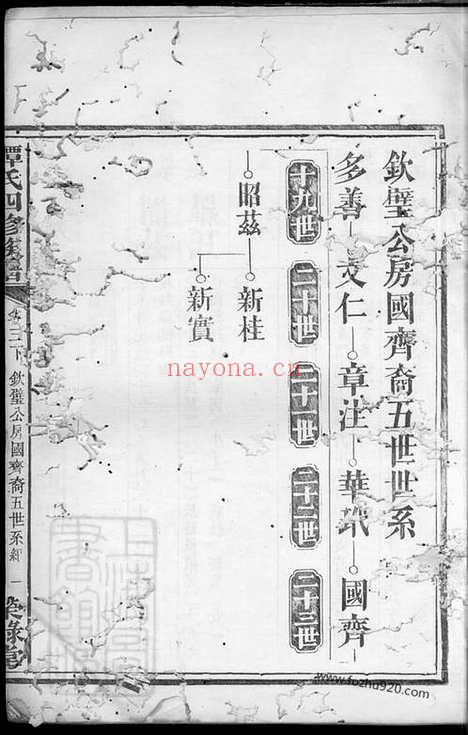 欽璧公房國齊裔五世世系
多善—文仁—章注—華玳—國齊
十九世 二十世 二十一世 二十二世 二十三世
昭茲—新桂
新實
譚氏四修族譜
卷三下 欽璧公房國齊裔五世系 一
nayona.cn
www.fozhu920.com